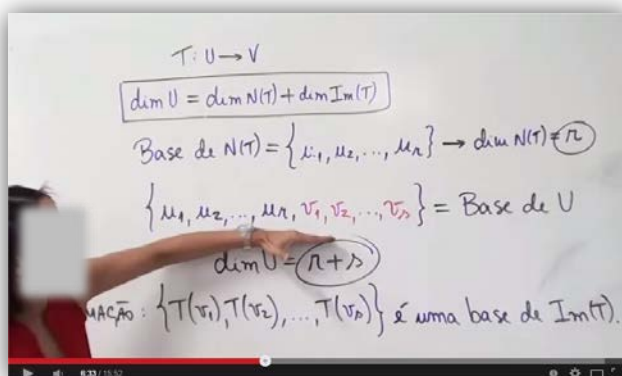 T: U → V
dim U = dim N(T) + dim Im(T)
Base de N(T) = {u₁, u₂, ..., uᵣ} → dim N(T) = r
{u₁, u₂, ..., uᵣ, v₁, v₂, ..., vₛ} = Base de U
dim U = r + s
MAÇÃO: {T(v₁), T(v₂), ..., T(vₛ)} é uma base de Im(T).
6:33 / 15:52